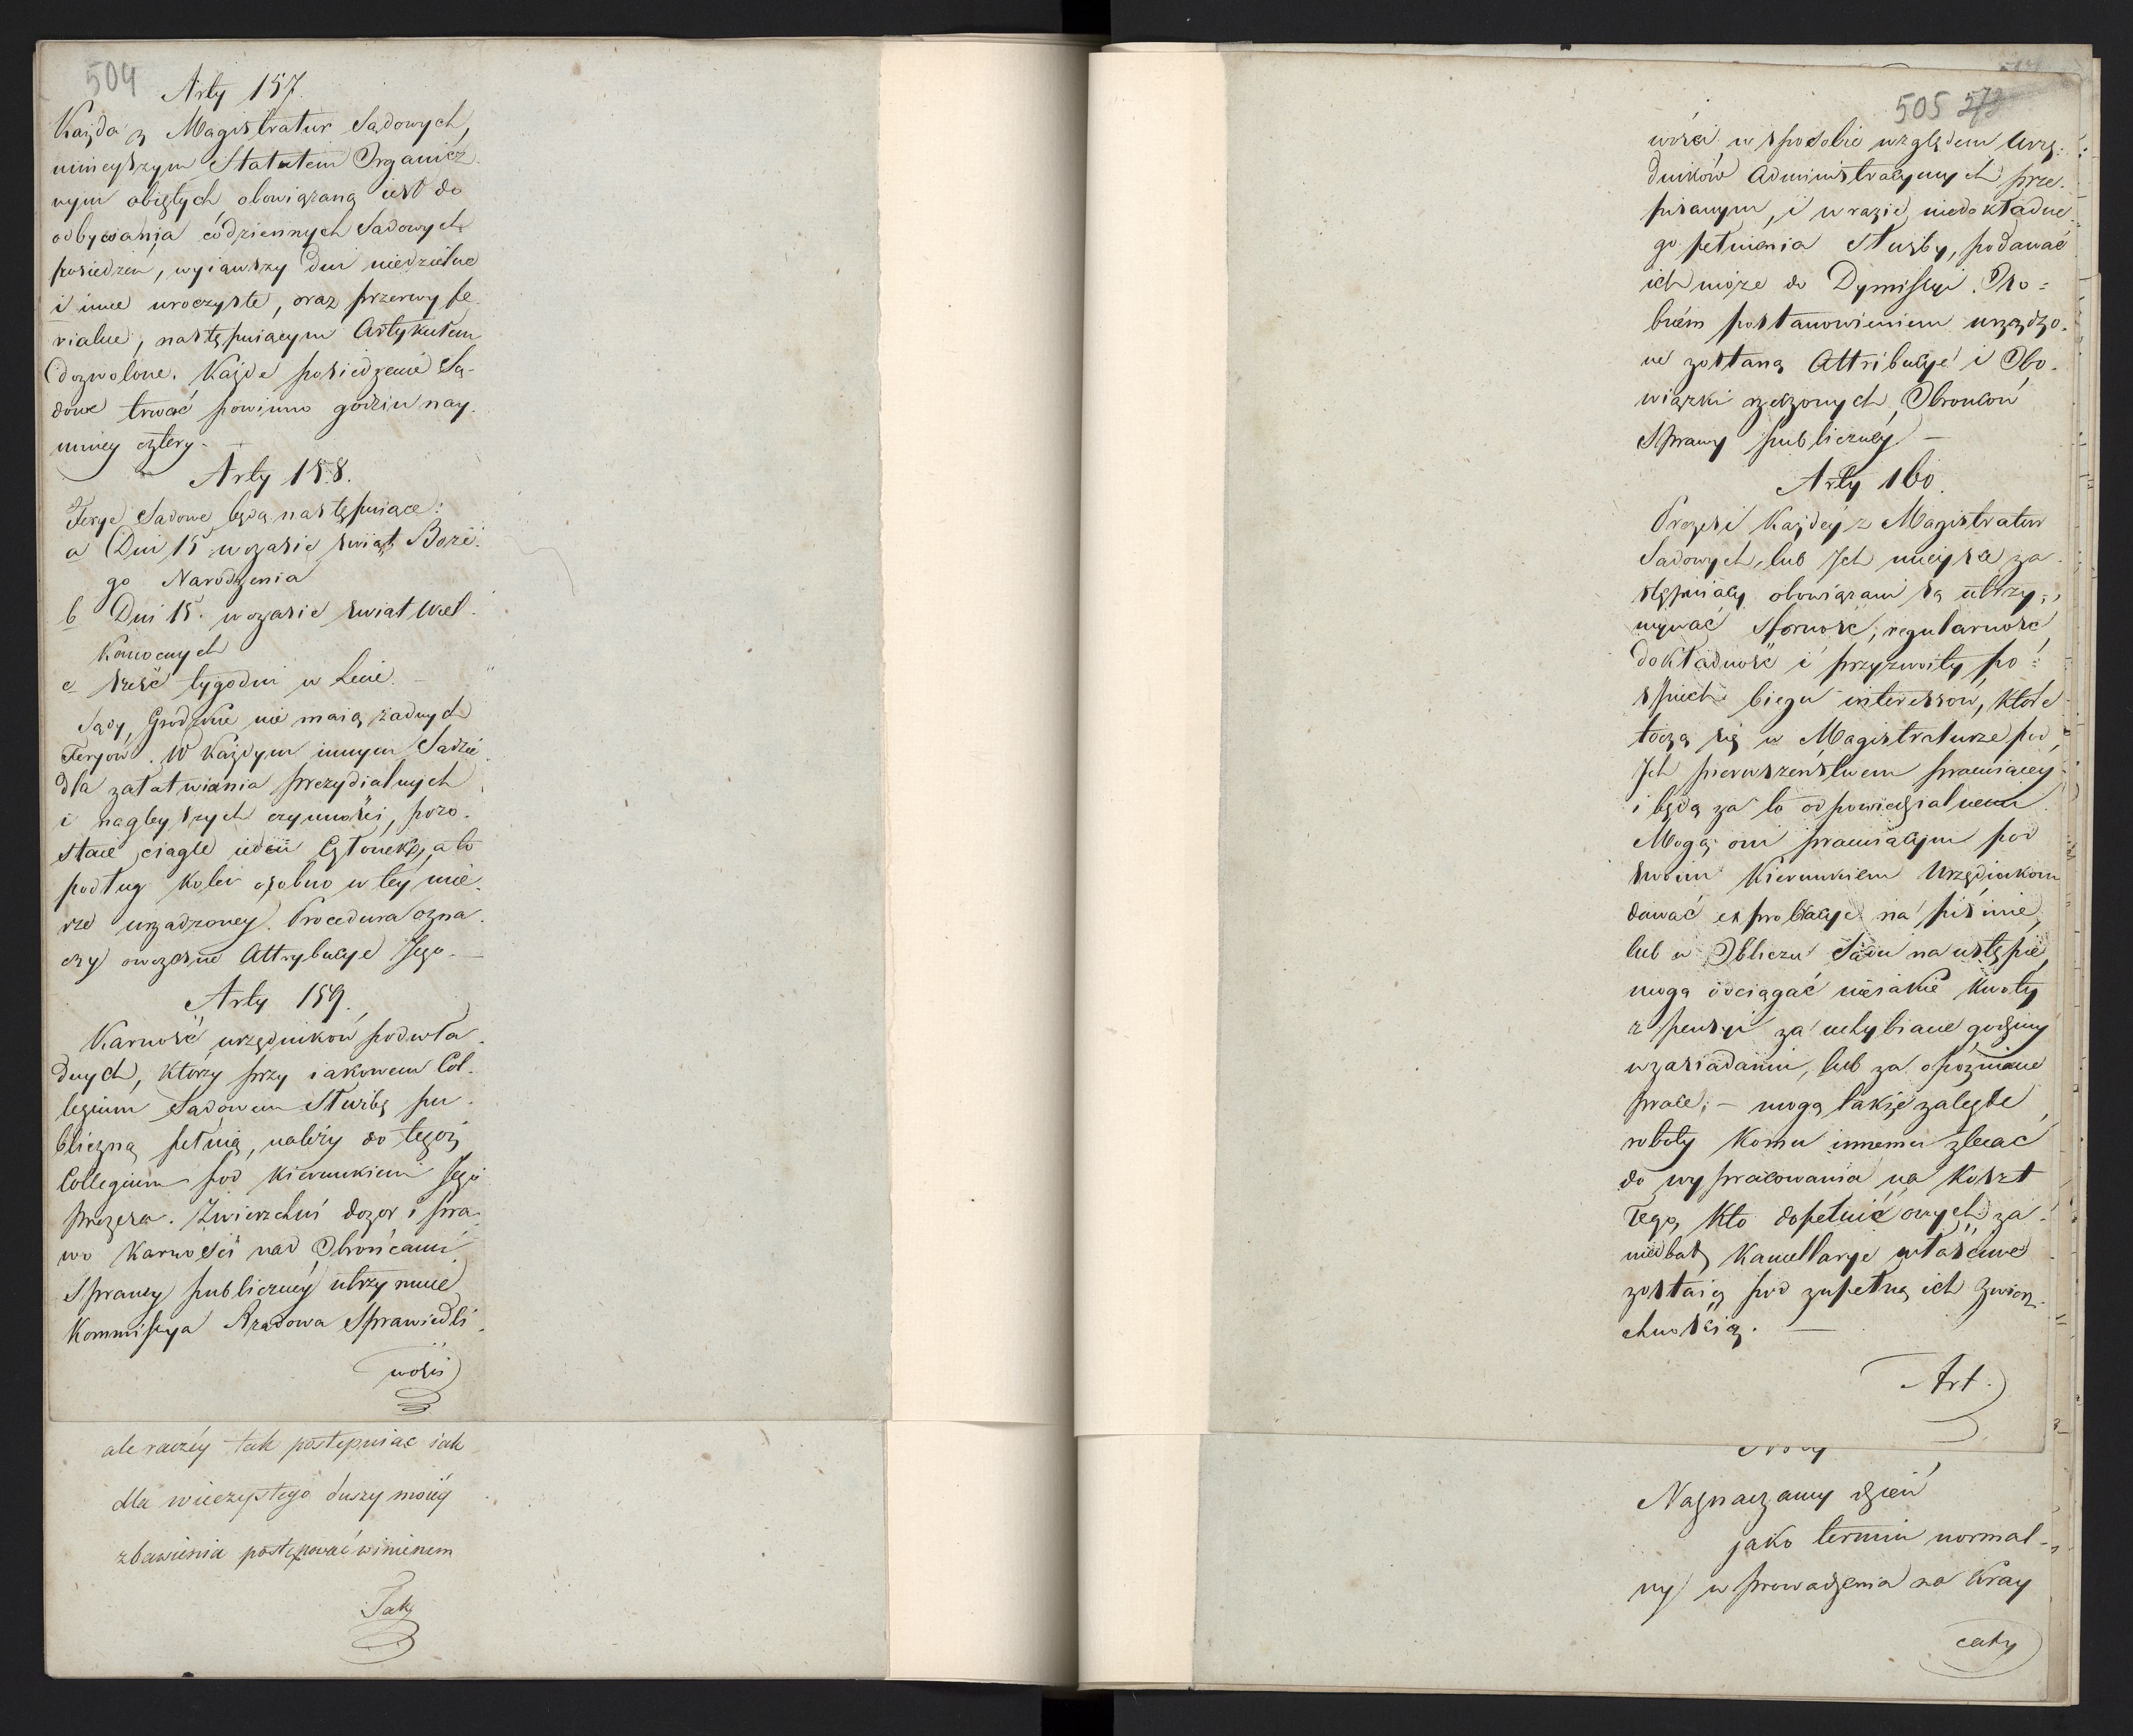 504
Arty 157.
Każda z Magistratur Sądowych,
ninieyszym Statutem Organicz
nym obiętych obowiązaną iest do
odbywania codziennych Sądowych
posiedzeń, wyiąwszy Dni niedzielne
i inne uroczyste, oraz przerwy fe-
rialne, następuiącym Artykułem
dozwolone. Każde posiedzenie Są-
dowe trwać powinno godzin nay-
mniey cztery. —
Arty 158.
Ferye Sądowe będą następuiące:
a Dni 15 w czasie świąt Boże-
go Narodzenia
b Dni 15. w czasie świąt Wiel-
kanocnych
c sześć tygodni w Lecie. —
Sądy Grodzkie nie maią żadnych
Feryow. W każdym innym Sądzie
dla załatwiania prezydialnych
i nagleyszych czynności, pozo-
staie ciągle ieden Członek, a to
podług kolei osobno w tey mie-
rze urządzoney. Procedura ozna-
czy owczesne Attrybucye Jego. —
Arty 159.
Karność urzędników podwła-
dnych, którzy przy iakowem Col-
legium Sądowem Służbę pu-
bliczną pełnią, należy do tegoż
Collegium pod kierunkiem Jego
prezesa. Zwierzchni dozor i pra-
wo karności nad Obrońcami
Sprawy publiczney utrzymuie
Kommissya Rządowa Sprawiedli-
wości
ale raczéy tak postępuiąc iak
dla wieczystego duszy moiéy
zbawienia postępować winienem
Tak
505 573
wości w sposobie względem Urzę-
dników Administracyinych prze-
pisanym, i w razie niedokładne-
go pełnienia Służby, podawać
ich może do Dymissyi. Oso-
bnem postanowieniem urządzo-
ne zostaną Attribucye i Obo-
wiązki rzeczonych Obrońców
Sprawy publiczney —
Arty 160.
Prezesi każdey z Magistratur
Sądowych, lub Ich mieysce za-
stępuiący obowiązani są utrzy-
mywać sforność, regularność,
dokładność i przyzwoity po-
spiech biegu interessow, które
toczą się w Magistraturze pod
Ich pierwszeństwem pracuiącey
i będą za to odpowiedzialnemi.
Mogą oni pracuiącym pod
swoim Kierunkiem Urzędnikom
dawać exprobacye na piśmie,
lub w Obliczu Sądu na ustępie,
mogą odciągać nieiakie kwoty
z pensyi za uchybiane godziny
w zasiadaniu, lub za opoźnione
prace; — mogą także zaległe
roboty komu innemu zlecać
do wypracowania na koszt
Tego, kto dopełnić onych za-
niedbał, Kancellarye właściwe
zostaią pod zupełną ich zwierz-
chnością. —
Art.
Naznaczamy dzień
jako termin normal-
ny wprowadzenia na Kray
cały